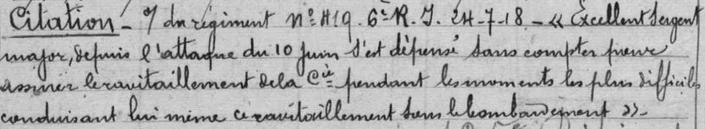 Citation - O/ du régiment Nº 419. 6e R. I. 24-7-18 - « Excellent sergent
major, depuis l'attaque du 10 juin s'est dépensé sans compter pour
assurer le ravitaillement de la Cie pendant les moments les plus difficiles
conduisant lui même ce ravitaillement sous le bombardement ».